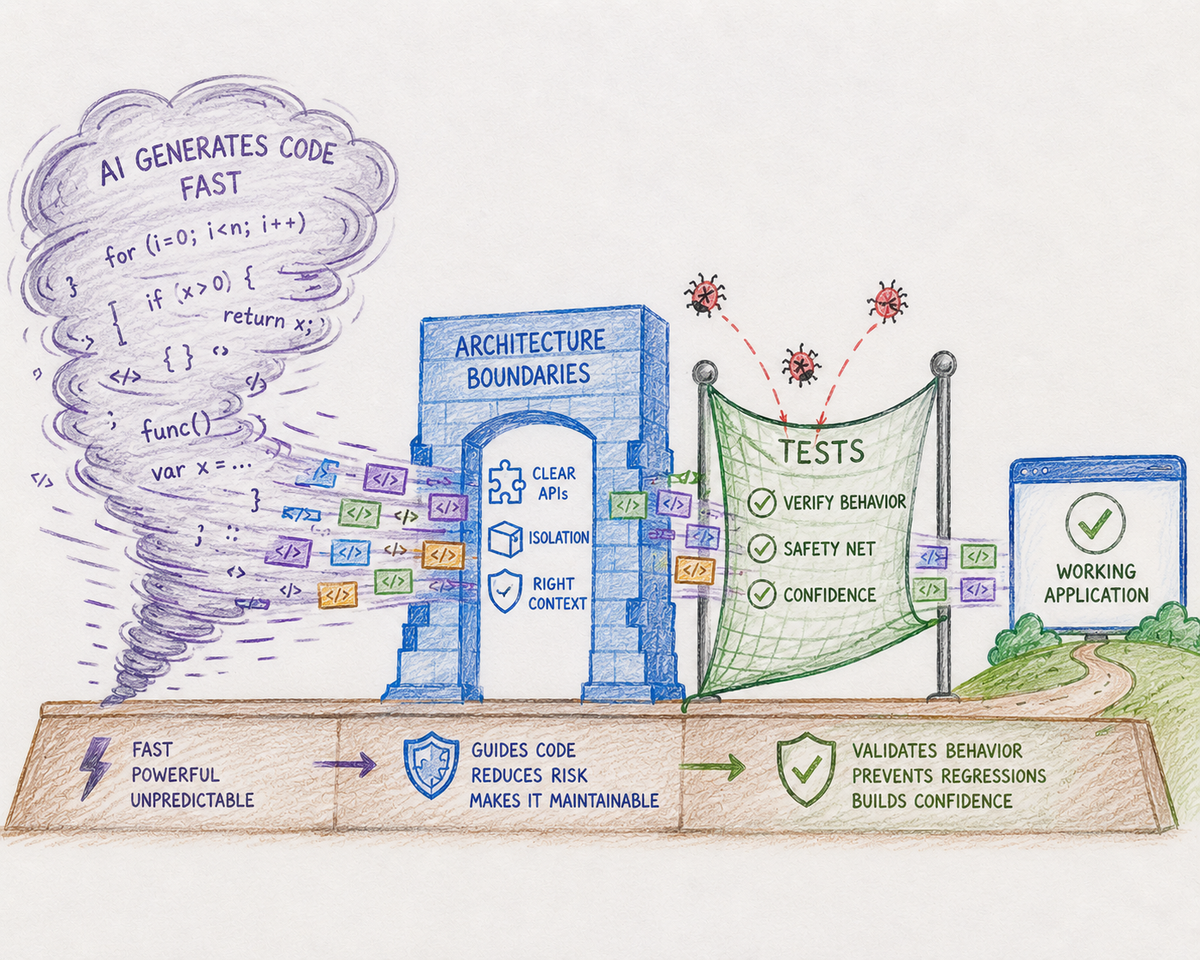 AI GENERATES CODE
FAST
for (i=0; i<n; i++)
}
if (x>0) {
return x;
{ }
<>
</>
</>
;
func()
var x = ...
}
; ::
<>
</>
</>
</>
</>
</>
</>
</>
</>
</>
</>
</>
</>
</>
ARCHITECTURE
BOUNDARIES
CLEAR
APIs
ISOLATION
RIGHT
CONTEXT
</>
</>
</>
</>
TESTS
VERIFY BEHAVIOR
SAFETY NET
CONFIDENCE
</>
</>
</>
</>
WORKING
APPLICATION
FAST
POWERFUL
UNPREDICTABLE
GUIDES CODE
REDUCES RISK
MAKES IT MAINTAINABLE
VALIDATES BEHAVIOR
PREVENTS REGRESSIONS
BUILDS CONFIDENCE